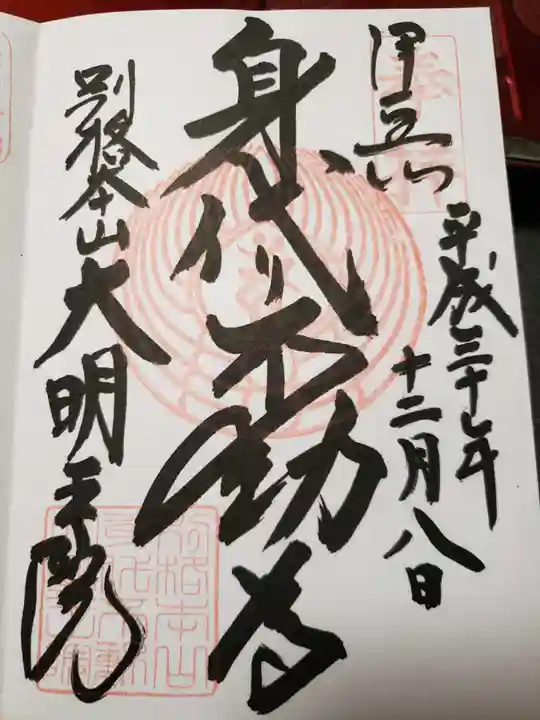 伊豆山
平成三十年
十二月八日
身代り不動尊
別格本山大明王院